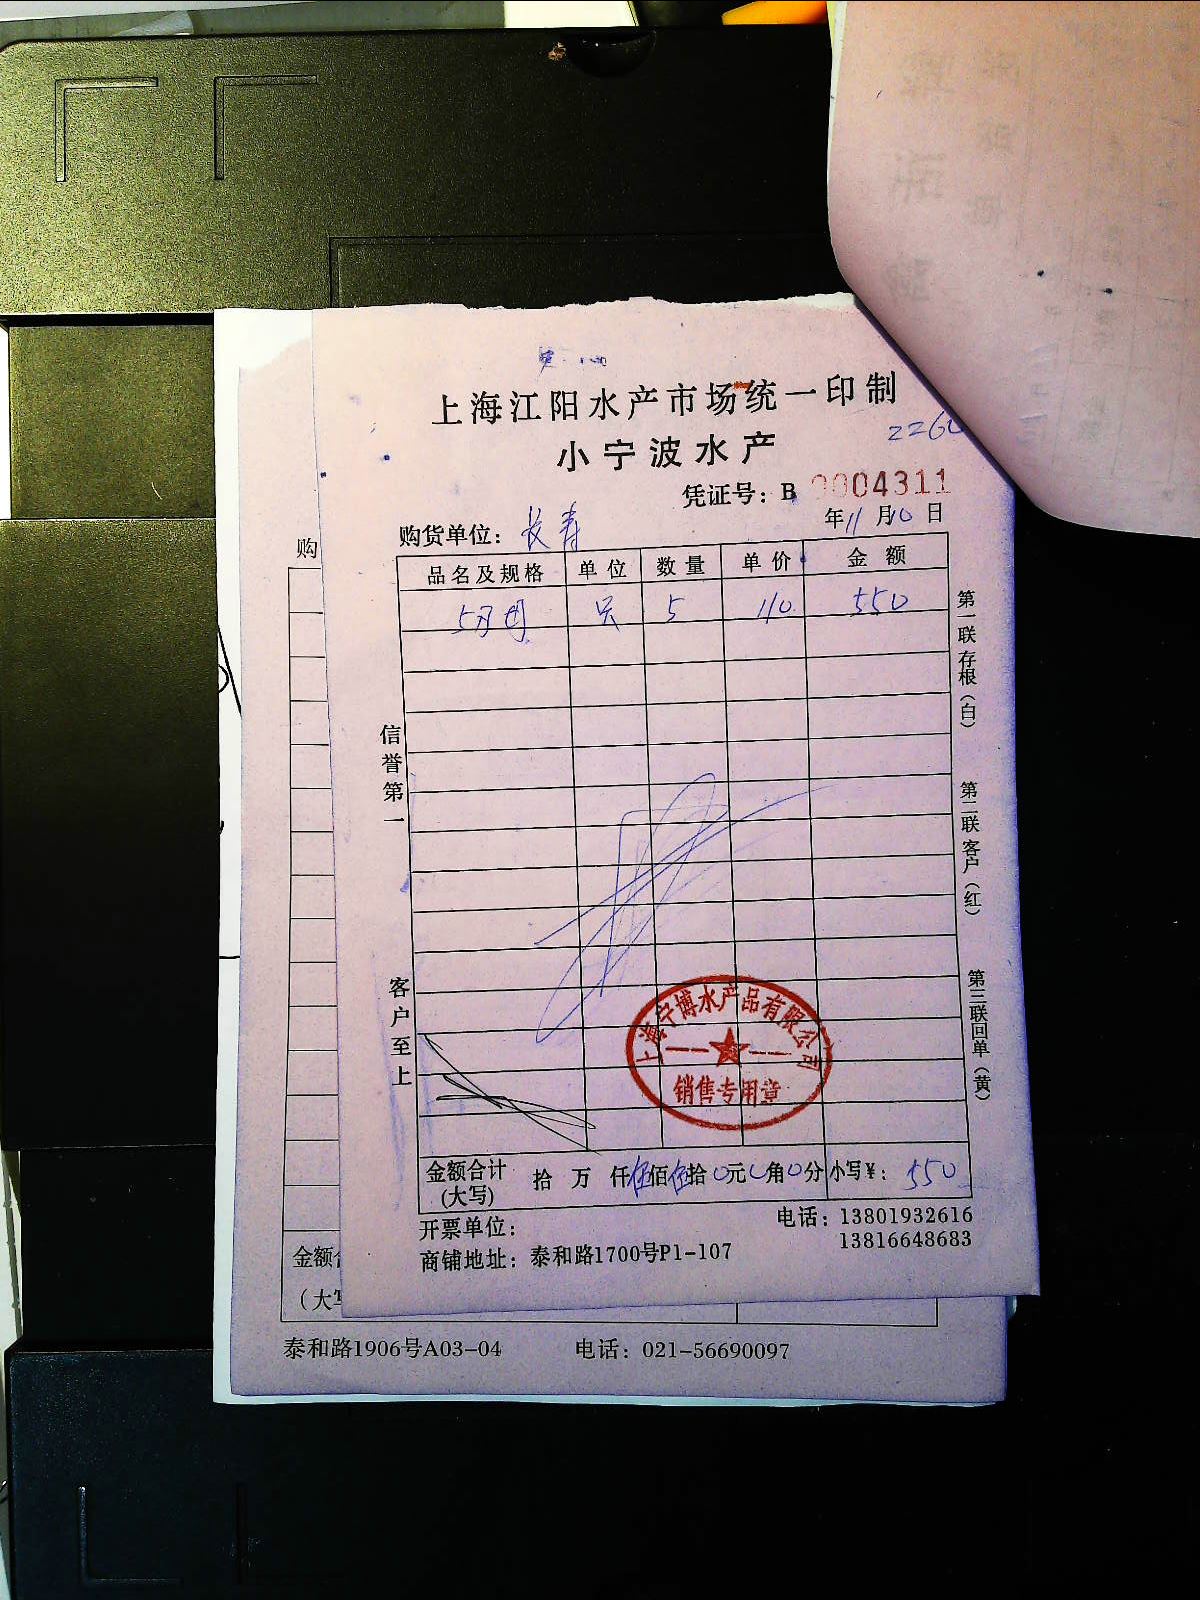 上海江阳水产市场统一印制
2260
小宁波水产
凭证号：B 0004311
购货单位：长寿 年11月10日
品名及规格 单位 数量 单价 金额
只 5 110 550
信誉第一
客户至上
第一联存根（白）
第二联客户（红）
第三联回单（黄）
上海宁博水产品有限公司
销售专用章
金额合计(大写) 拾 万 仟伍佰伍拾0元0角0分 小写¥：550
开票单位：
电话：13801932616
13816648683
商铺地址：泰和路1700号P1-107
购
金额
（大写
泰和路1906号A03-04 电话：021-56690097